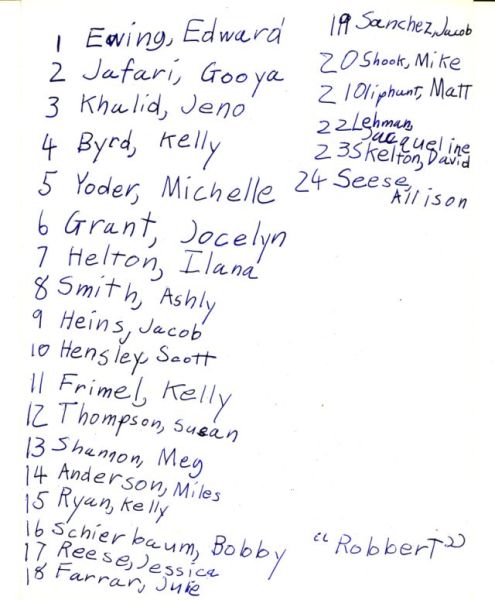 1 Ewing, Edward
2 Jafari, Gooya
3 Khalid, Jeno
4 Byrd, Kelly
5 Yoder, Michelle
6 Grant, Jocelyn
7 Helton, Ilana
8 Smith, Ashly
9 Heins, Jacob
10 Hensley, Scott
11 Frimel, Kelly
12 Thompson, Susan
13 Shannon, Meg
14 Anderson, Miles
15 Ryan, Kelly
16 Schierbaum, Bobby "Robbert"
17 Reese, Jessica
18 Farrar, Julie
19 Sanchez, Jacob
20 Shook, Mike
21 Oliphant, Matt
22 Lehman,
Jacqueline
23 Skelton, David
24 Seese,
Allison